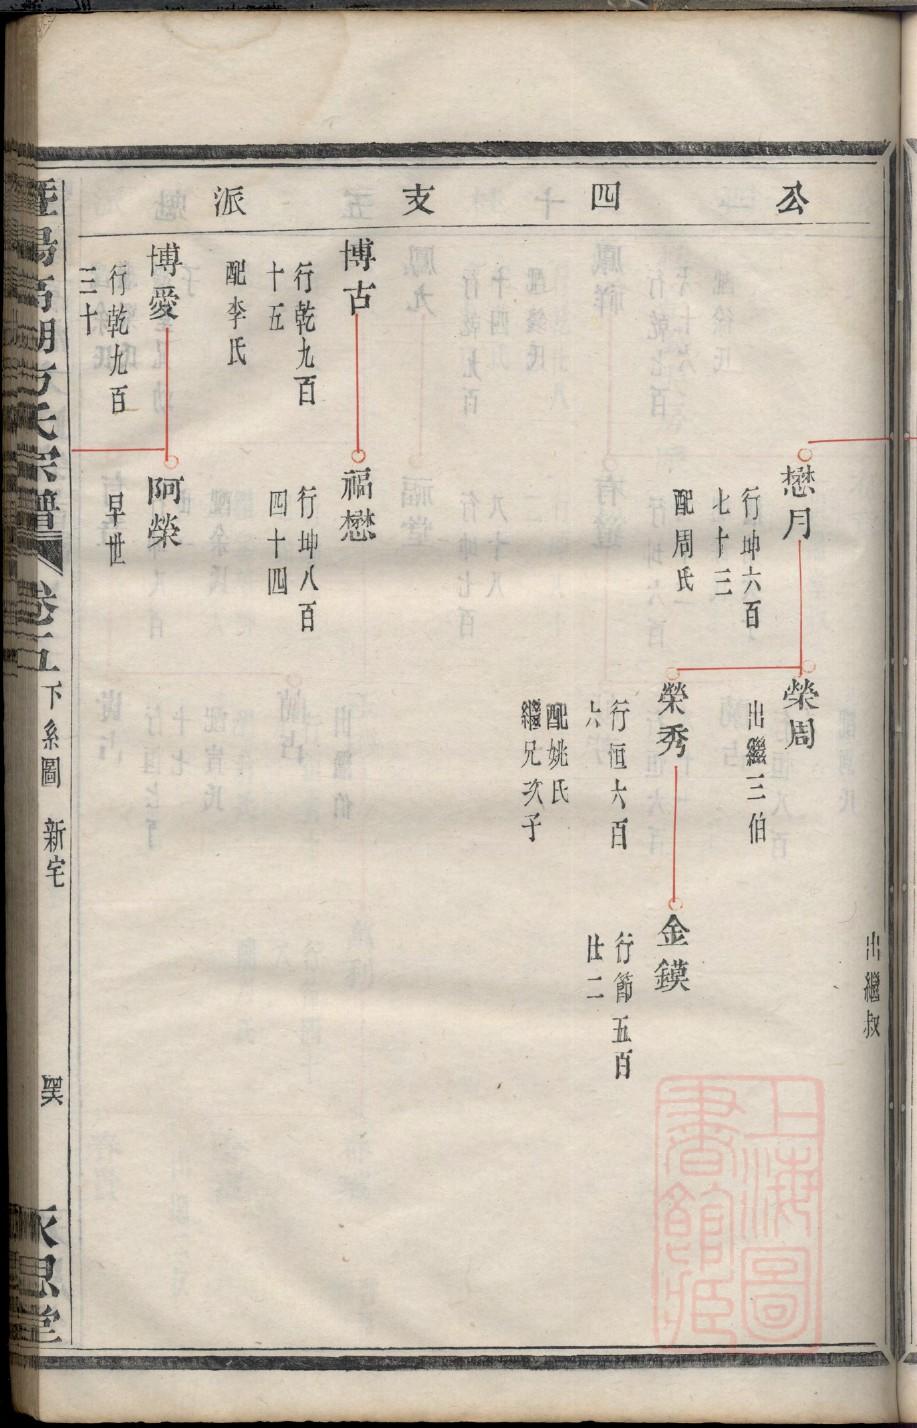 公四支派
出繼叔
懋月
行坤六百
七十三
配周氏
榮周
出繼三伯
榮秀
行恒六百
六
配姚氏
繼兄次子
金鏌
行節五百
廿二
博古
行乾九百
十五
配李氏
福懋
行坤八百
四十四
博愛
行乾九百
三十
阿榮
早世
暨陽高湖方氏宗譜
卷五
下系圖
新宅
永思堂
上海圖
書館藏